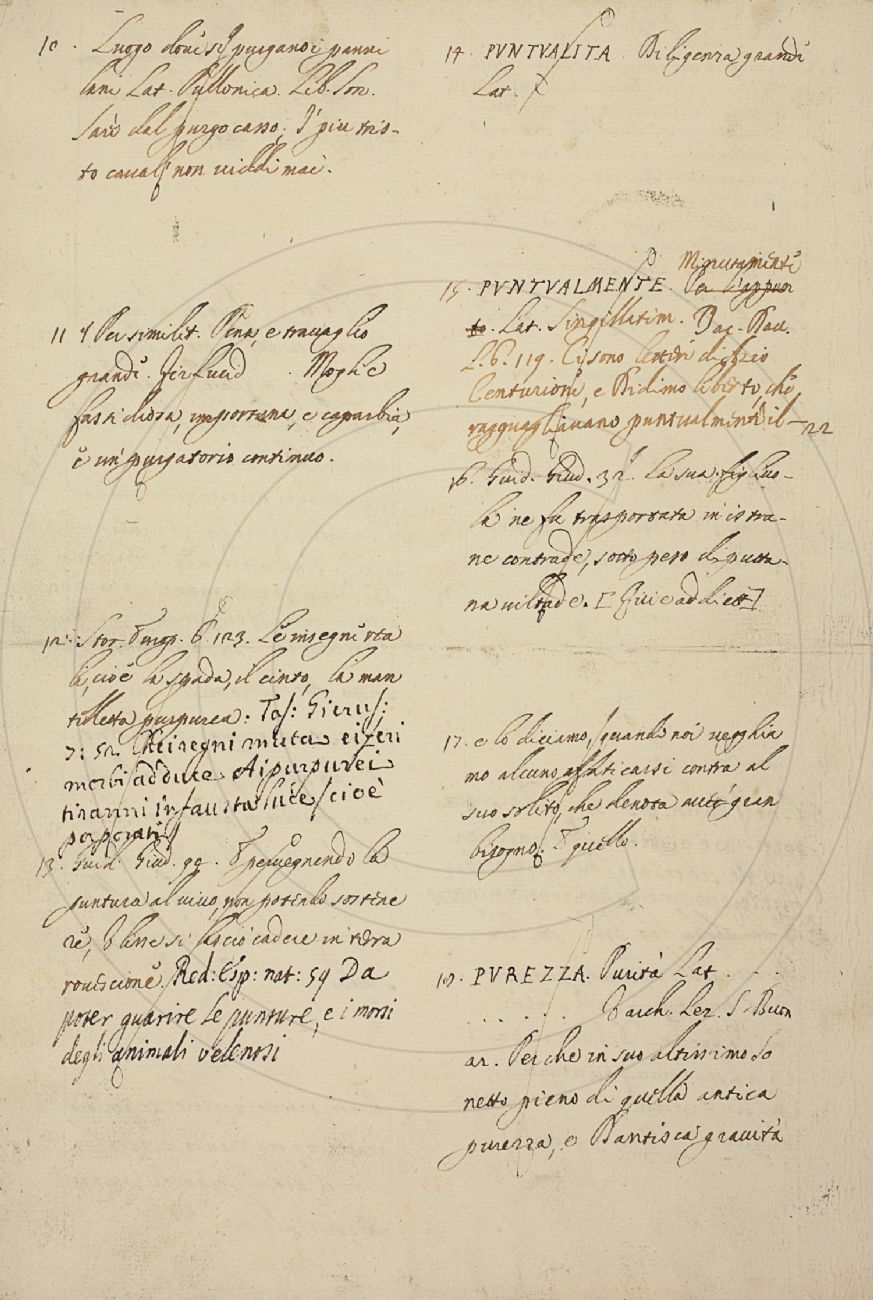 10. Luogo dove si purgano i panni
lani Lat. Fullonica. Lib. Son.
Sarò dal purgo casso, I' piu tris-
to caval non viddi mai.
11 § Per similit. Pena, e travaglio
grande. Fir. Lucid . Moglie
fastidiosa, importuna, e caparbia,
è un' purgatorio continuo.
12. Stor. 6. 123. Le insegne rea
li, cioè la spada, il cinto, la man
telletta purpurea: Tas: Gierus:
7: 52. Che i regni muta e i feri
morbi adduce. Ai purpurei
tiranni infausta luce/cioè
porporati/
13. Guid. Giud. 99. pervegnendo la
puntura al vivo, non potendo sostene
re, si lasciò cadere in terra
rovescione. Red: Esp: nat: 59 Da
poter guarire le punture, e i morsi
degli animali velenosi
14. PVNTVALITA. Diligenza grande
Lat.
15. PVNTVALMENTE. Minutamente
Per l'appun
to. Lat. Singillatim. Dav.
L. 6. 119. Ci sono lettere di Azio
Centurione, e Didimo liberto, che
ragguagliavano puntualmente il—22
16. Guid. Giud. 32. La sua figliuo-
la ne fu trasportata in istra-
ne contrade, sotto peso di putta-
na viltade. [ Qui è addiett.]
17. e lo diciamo, quando noi vegghia
mo alcuno affaticarsi contra al
suo solito, che denota aver gran
bisogno: quello.
19. PVREZZA. Purità Lat. . . .
. . . . . . Varch. Lez. S. Buon
ar. Perche in suo altissimo So
netto pieno di quella antica
purezza, e Dantisca gravità